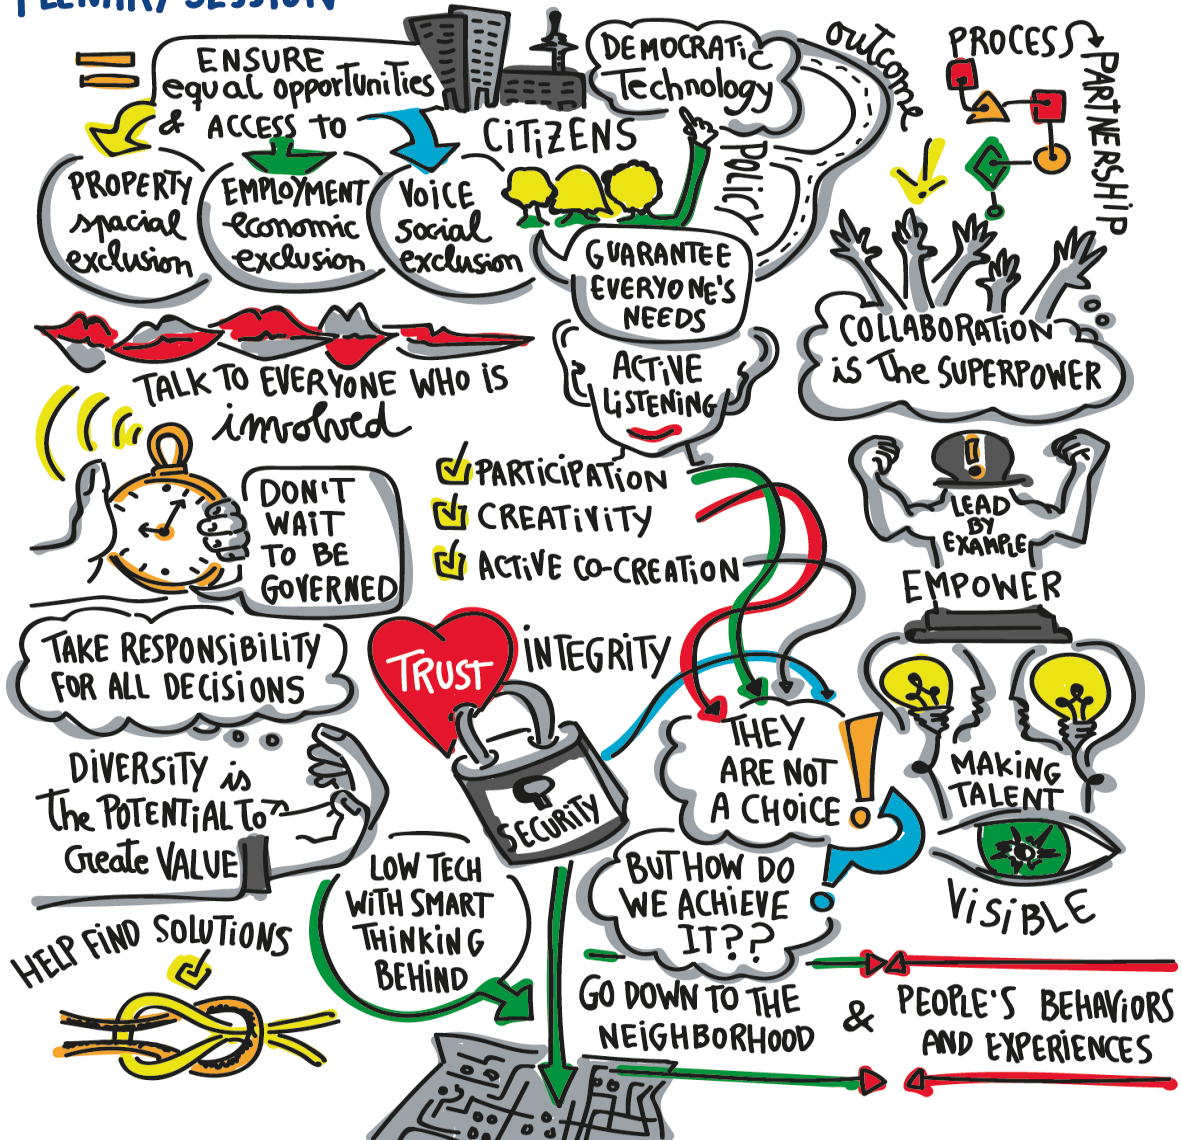 PLENARY SESSION
ENSURE
equal opportunities
& ACCESS TO
PROPERTY
spacial
exclusion
EMPLOYMENT
economic
exclusion
VOICE
social
exclusion
CITIZENS
DEMOCRATIC
Technology
POLICY
outcome
GUARANTEE
EVERYONE'S
NEEDS
ACTIVE
LISTENING
PROCESS
PARTNERSHIP
COLLABORATION
is The SUPERPOWER
TALK TO EVERYONE WHO IS
involved
DON'T
WAIT
TO BE
GOVERNED
PARTICIPATION
CREATIVITY
ACTIVE CO-CREATION
LEAD
BY
EXAMPLE
EMPOWER
TAKE RESPONSIBILITY
FOR ALL DECISIONS
TRUST
INTEGRITY
SECURITY
THEY
ARE NOT
A CHOICE
!
MAKING
TALENT
VISIBLE
DIVERSITY is
the POTENTIAL TO
Create VALUE
LOW TECH
WITH SMART
THINKING
BEHIND
BUT HOW DO
WE ACHIEVE
IT??
?
HELP FIND SOLUTIONS
GO DOWN TO THE
NEIGHBORHOOD
&
PEOPLE'S BEHAVIORS
AND EXPERIENCES